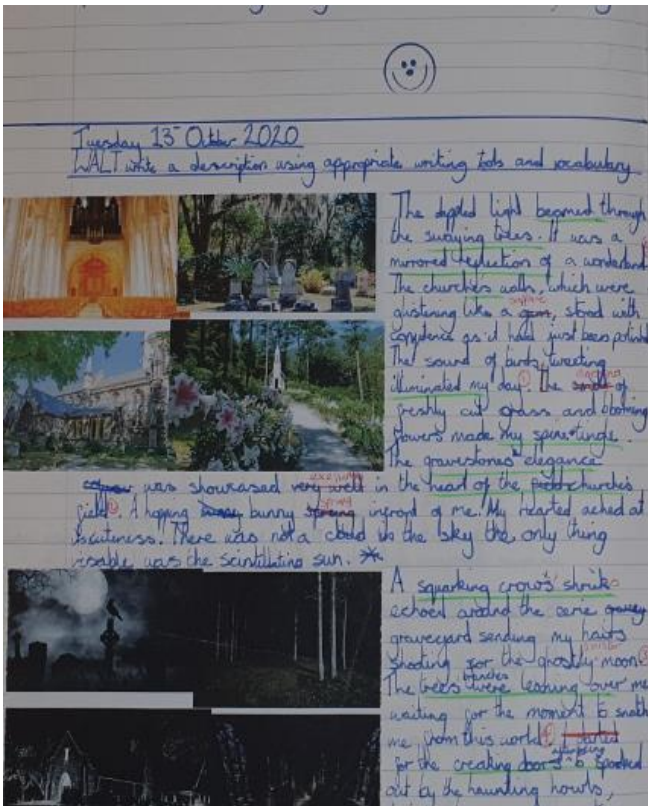 Tuesday 13th October 2020
WALT write a description using appropriate writing tools and vocabulary
The dappled light beamed through
the swaying trees. It was a
mirrored reflection of a wonderland
The churche's walls, which were
sapphire
glistening like a gem, stood with
confidence as if had just been polished
The sound of birds tweeting
illuminated my day. ① The of
freshly cut grass and blooming
flowers made my spine tingle.
The gravestones elegance
was showcased very well in the heart of the churche's
field ②. A hopping bunny infront of me. My hearted ached at
cuteness. There was not a cloud in the sky the only thing
visable was the scintillating sun. *
A squarking crow's shriek
echoed around the eerie
graveyard sending my hairs
sinister
shooting for the ghostly moon. ③
branches
The trees were leaning over me
waiting for the moment to snatch
me from this world. ④ I
for the creaking doors to
out by the haunting howls,